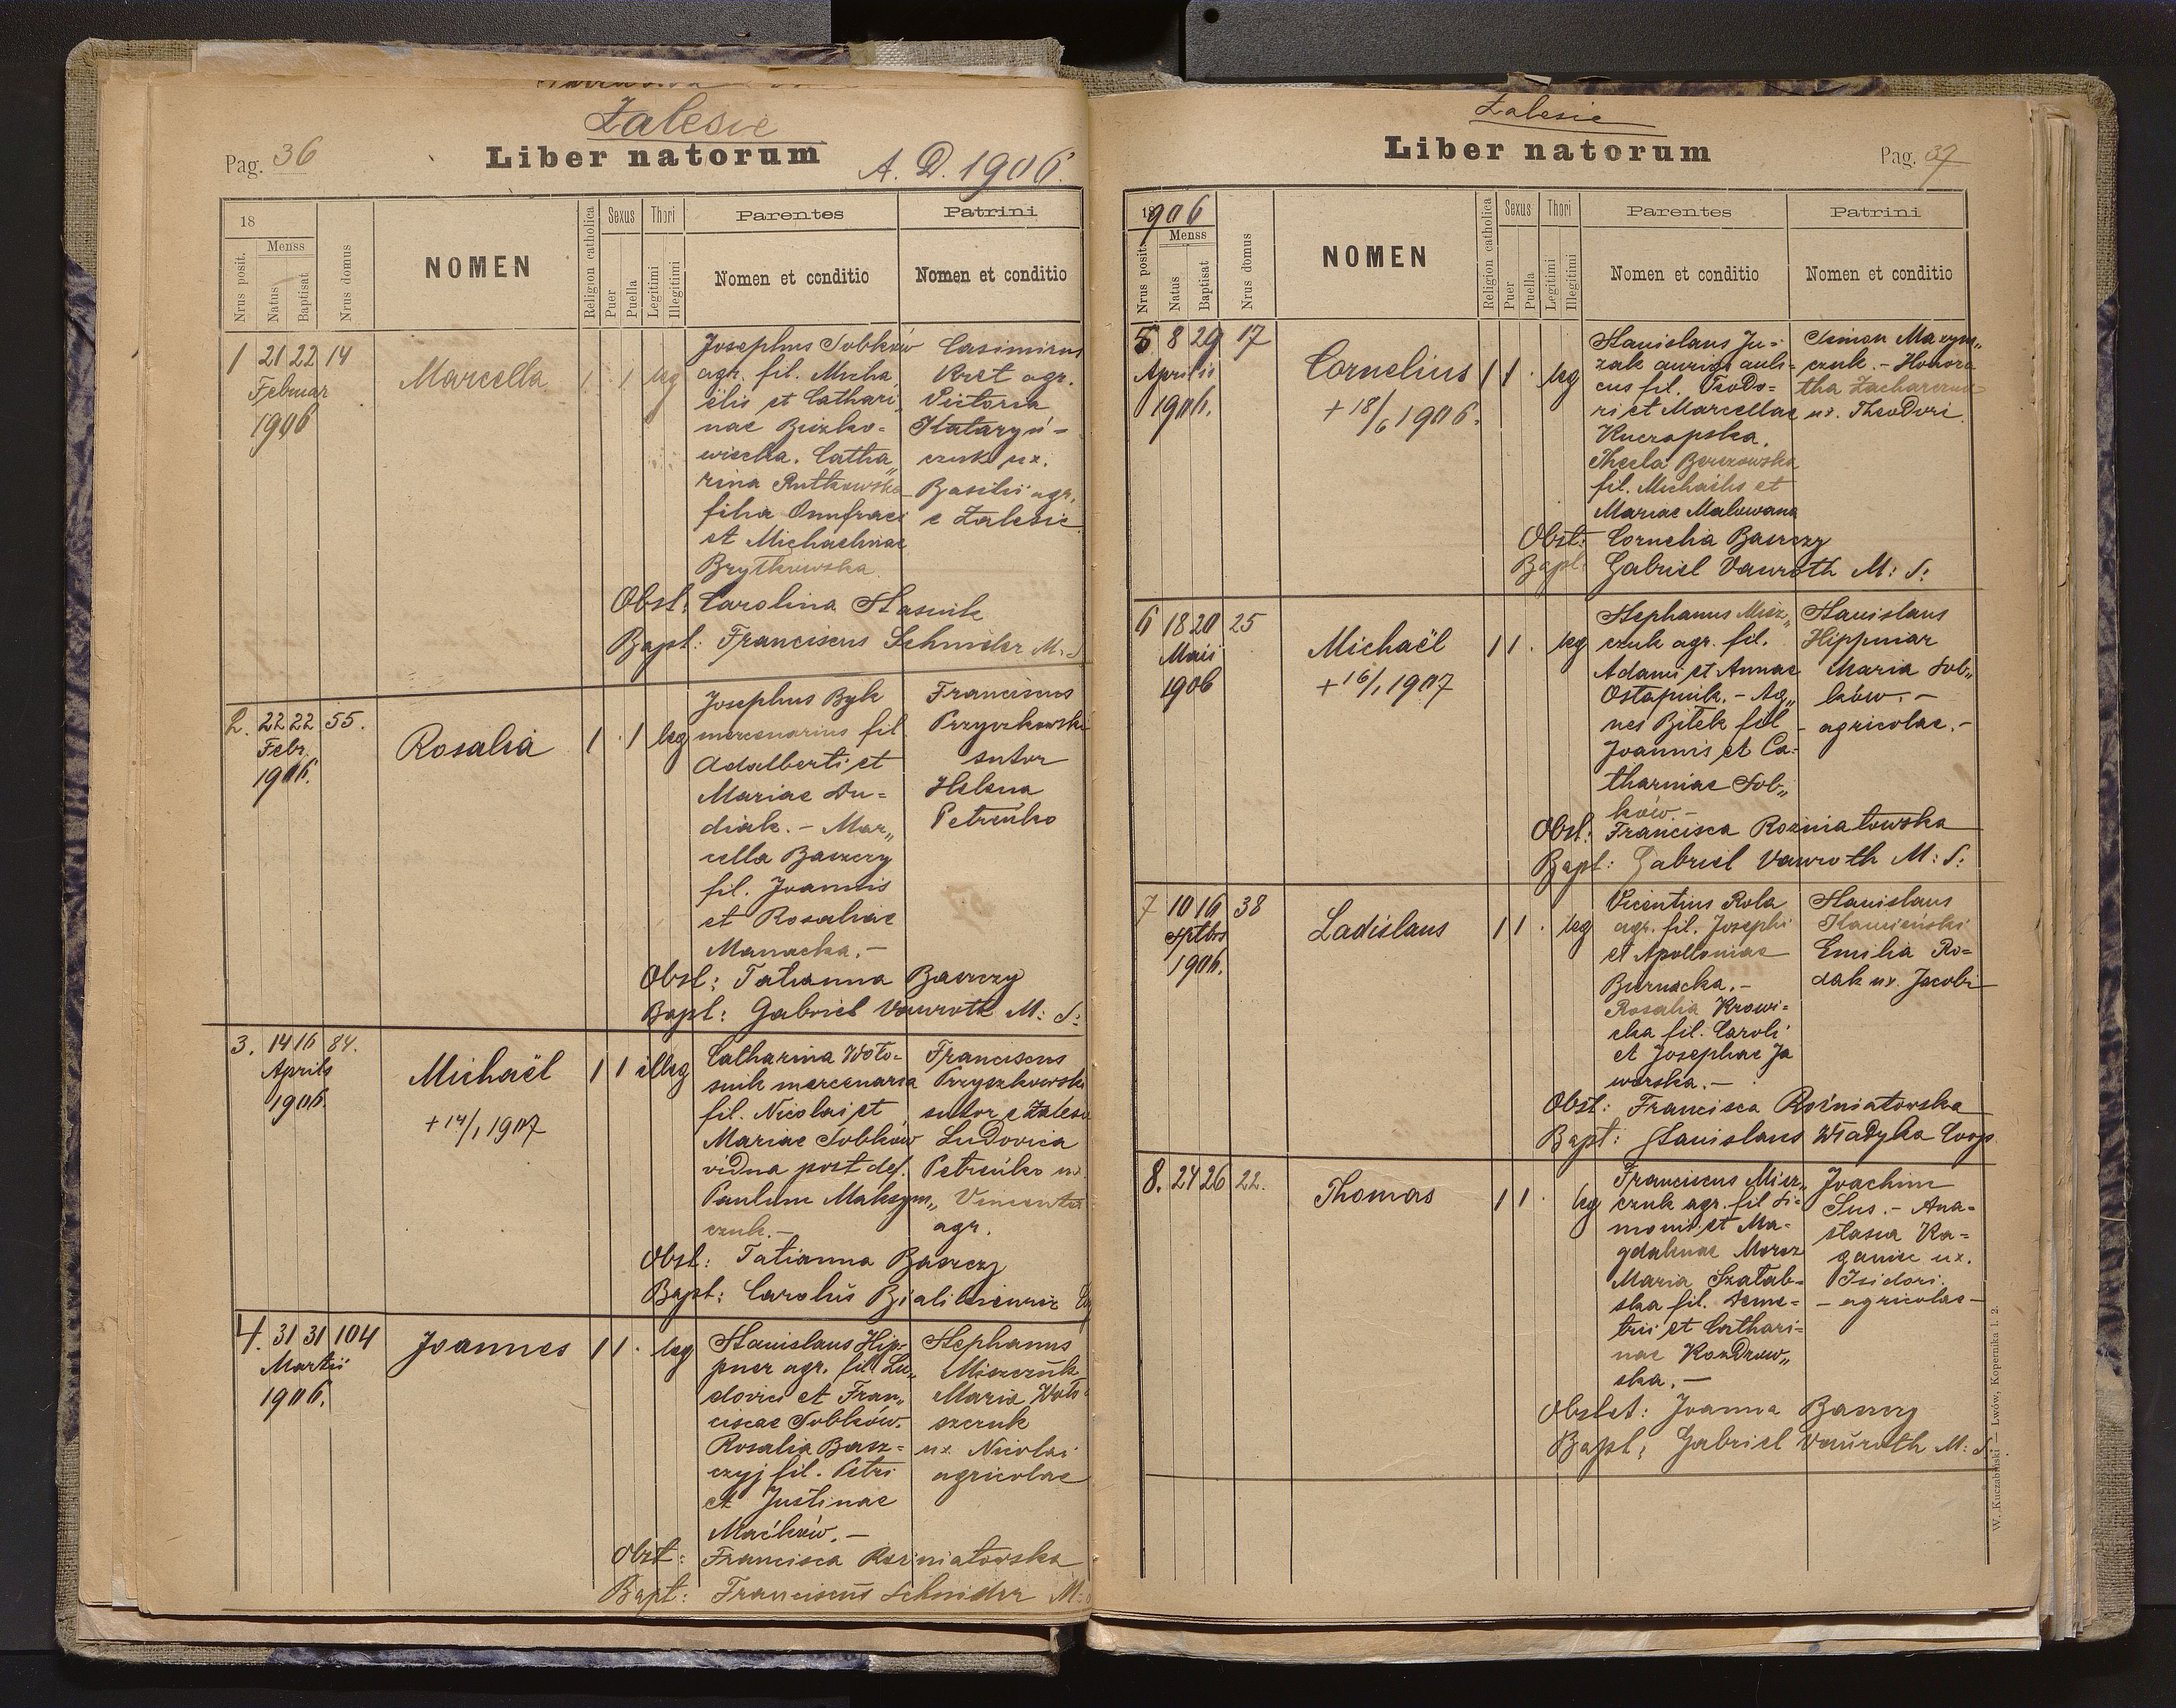 Zalesie
Pag. 36
Liber natorum
A. D. 1906.
18
Nrus posit.
Menss
Natus
Baptisat
Nrus domus
NOMEN
Religion catholica
Sexus
Puer
Puella
Thori
Legitimi
Illegitimi
Parentes
Nomen et conditio
Patrini
Nomen et conditio
1 21 22 14
Februar
1906
Marcella
1 . 1 leg
Josephus Sobków
agr. fil. Micha
elis et Cathari„
nae Buzko=
wiecka. Catha„
rina Rutkowska
filia Onufraei
et Michaelinae
Brytkowska
Casimirus
Kret agr.
Victoria
Kataryń-
czuk ux.
Basilii agr.
e Zalesie
Obst: Carolina Stasnik
Bapt: Franciscus Schnider M.
2. 22 22 55.
Febr.
1906.
Rosalia
1 . 1 leg
Josephus Byk
mercenarius fil
Adalberti et
Mariae Du=
diak. - Mar„
cella Baszczy
fil. Joannis
et Rosaliae
Manacka. -
Franciscus
Przyszkowski
sutor
Helena
Petreńko
Obst: Tatianna Baszczy
Bapt: Gabriel Vawroth M: S:
3. 14 16 84.
Aprilis
1906.
Michaël
+ 14/1 1907
1 1 illeg
Catharina Woło-
snik mercenaria
fil. Nicolai et
Mariae Sobków
vidua post def.
Paulum Maksym„
czuk. -
Franciscus
Przyszkowski
sutor e Zalesie
Ludovica
Petreńko ux
Vincentii
agr.
Obst: Tatianna Baszczy
Bapt: Carolus
4. 31 31 104
Martii
1906.
Joannes
1 1 . leg
Stanislaus Hip-
pner agr. fil Lu„
dovici et Fran„
ciscae Sobków.
Rosalia Basz=
czyj fil. Petri
et Justinae
Maćków. -
Stephanus
Miszczuk
Maria
szczuk
ux Nicolai
agricolae
Obst: Francisca Rożniatowska
Bapt: Franciscus Schnider M:
Zalesie
Liber natorum
Pag. 37
1906
Nrus posit.
Menss
Natus
Baptisat
Nrus domus
NOMEN
Religion catholica
Sexus
Puer
Puella
Thori
Legitimi
Illegitimi
Parentes
Nomen et conditio
Patrini
Nomen et conditio
5 8 29 17
Aprilis
1906.
Cornelius
+ 18/6 1906.
1 1 . leg
Stanislaus Ju=
zak auriga auli-
cus fil. Teodo=
ri et Marcellae
Kuczapska.
Thecla Berezowska
fil. Michaëlis et
Mariae Malowana
Simon Maxym„
czuk. - Honora
tha Zacharczuk
ux. Theodori
Obst: Cornelia Baszczy
Bapt: Gabriel Vawroth M: S:
6 18 20 25
Maii
1906
Michaël
+ 16/1 1907
1 1 . leg
Stephanus Misz„
czuk agr. fil.
Adami et Annae
Ostapnik. - Ag„
nes Bilek fil
Joannis et Ca-
tharniae Sob„
ków. -
Stanislaus
Hippnar
Maria Sob„
ków. -
agricolae. -
Obst: Francisca Rożniatowska
Bapt: Gabriel Vawroth M: S:
7 10 16 38
Sptbris
1906.
Ladislaus
1 1 . leg
Vicentius Rola
agr. fil. Josephi
et Apolloniae
Burnacka. -
Rosalia Krowi=
cka fil. Caroli
et Josephae Ja
worska. -
Stanislaus
Kamieński
Emilia Ro=
dak ux. Jacobi
Obst: Francisca Rożniatowska
Bapt: Stanislaus Władyka Coop
8. 24 26 22.
Thomas
1 1 . leg
Franciscus Misz„
czuk agr. fil Si=
monis et Ma-
gdalenae Moroz
Maria Szatab-
ska fil. Deme=
trii et Cathari=
nae Kozdrow„
ska. -
Joachim
Sus. - Ana=
stasia Ka=
ganiec ux.
Isidori.
- agricolae -
Obstet: Joanna Baszczy
Bapt: Gabriel Vawroth M: S.
W. Kuczabiński — Lwów, Kopernika l. 2.